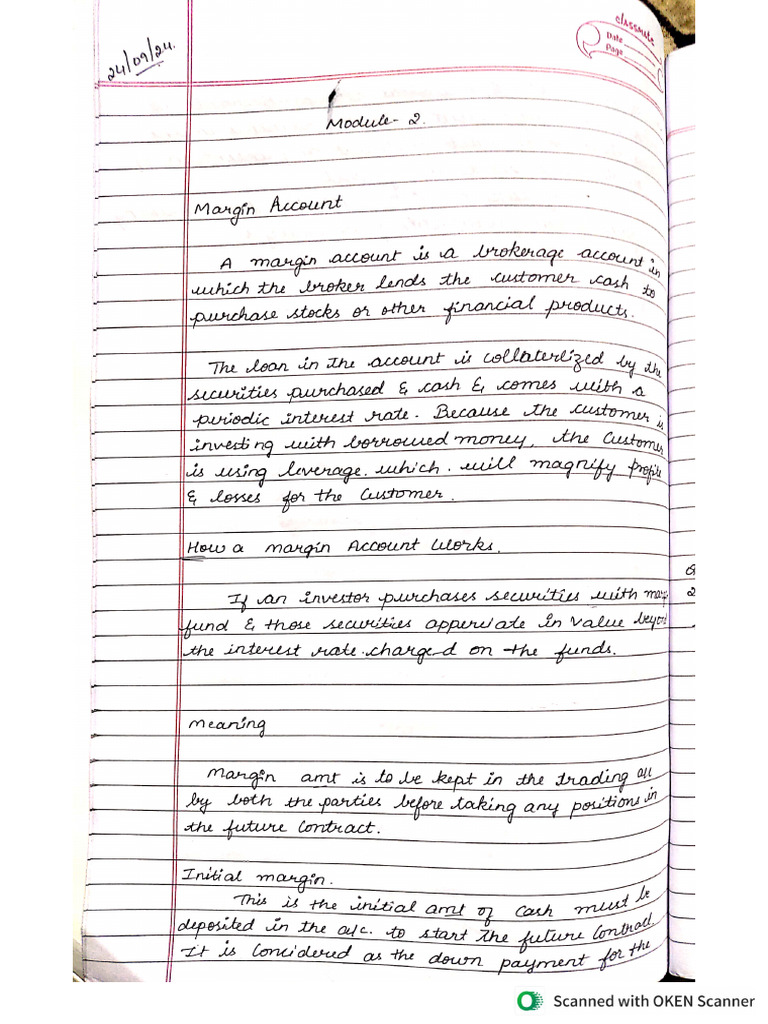 classmate
Date
Page
24/09/24.
Module - 2.
Margin Account
A margin account is a brokerage account in
which the broker lends the customer cash to
purchase stocks or other financial products.
The loan in the account is collaterlized by the
securities purchased & cash &, comes with a
periodic interest rate. Because the customer is
investing with borrowed money, the Customer
is using leverage. which. will magnify profits
& losses for the Customer.
How a margin Account Works.
If an investor purchases securities with
fund & those securities apperciate in value beyond
the interest rate charged on the funds.
Meaning
Margin amt is to be kept in the trading a/c
by both the parties before taking any positions in
the future contract.
Initial margin.
This is the initial amt of cash must be
deposited in the a/c. to start the future contract.
It is Concidered as the down payment for the
2
Scanned with OKEN Scanner